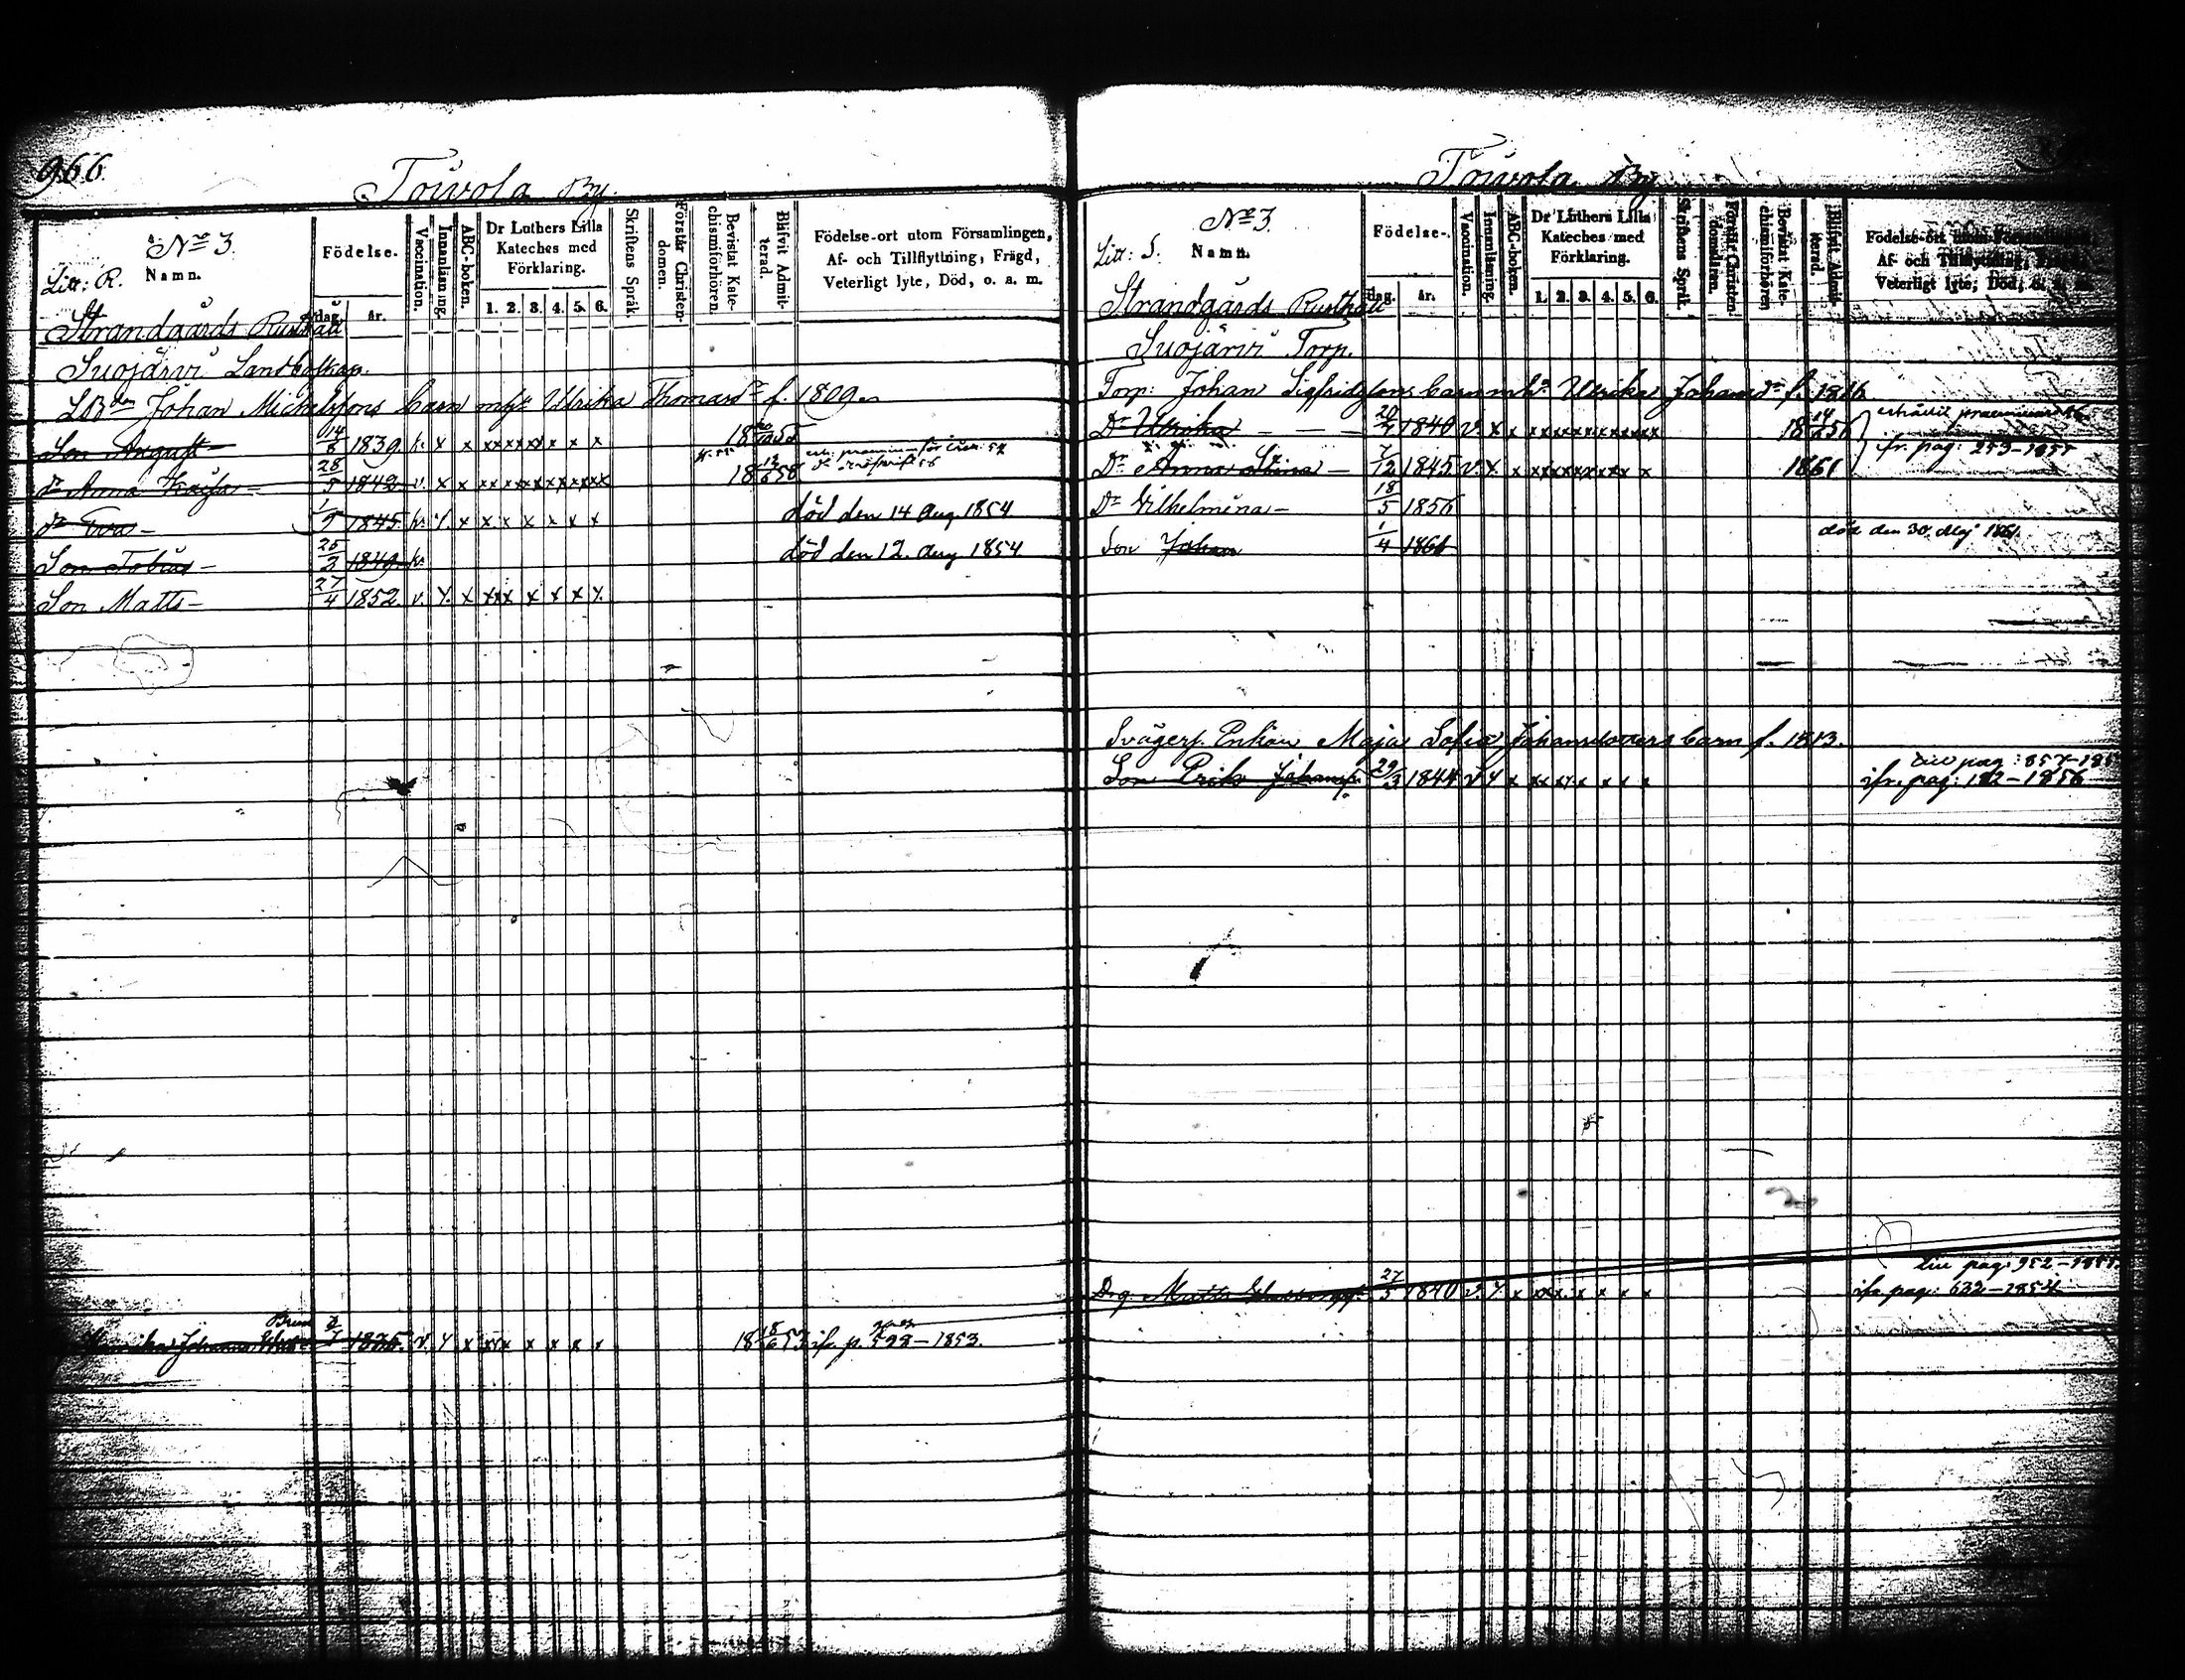 966.
Toivola By.
No 3.
Litt: R.
Namn.
Födelse.
dag.
år.
Vaccination.
Innanläsning.
ABC-boken.
Dr Luthers Lilla Kateches med Förklaring.
1. 2. 3. 4. 5. 6.
Skriftens Språk.
Förstår Christendomen.
Bevistat Katechismiförhören.
Blifvit Admitterad.
Födelse-ort utom Församlingen, Af- och Tillflyttning, Frägd, Veterligt lyte, Död, o. a. m.
Strandgårds Rusthåll
Suojärvi Landbolkap.
Johan Michelssons barn m Ulrika Thomasd. f. 1809.
Son August 14/6 1839. v. x x xxxxxx x x x 18 55
Dr Anna Kajsa 28/5 1842 v. x x xx xxxxxxxxxx 18 12/6 58
Dr Eva 1/9 1845. v. x x x x x x x död den 14 Aug 1854
Son Tobias 25/2 1849 v. död den 12. Aug 1854
Son Matts 27/4 1852. v. x. x xxx x x x x.
Johanna 1836. v. x x xxx x x x x 18 18/6 53 ifr. p. 598 – 1853.
Toivola By
No 3.
Litt: S.
Namn.
Födelse.
dag.
år.
Vaccination.
Innanläsning.
ABC-boken.
Dr Luthers Lilla Kateches med Förklaring.
1. 2. 3. 4. 5. 6.
Skriftens Språk.
Förstår Christendomen.
Bevistat Katechismiförhören
Blifvit Admitterad.
Födelse-ort utom Församlingen, Af- och Tillflyttning, Frägd, Veterligt lyte, Död, o. a. m.
Strandgårds Rusthåll
Suojärvi Torp.
Torp: Johan Sigfridssons barn m Ulrika Johansd. f. 1816.
Dr Ulrika 1840 v. x x xxxxxxxxxxx 18 14/6 56
Dr Anna Stina 7/12 1845 v. x. x xxxxxxxx x x 1861 fr. pag: 253–1855
Dr Vilhelmina 18/5 1856
Son Johan 1/4 1861 död den 30. Maj 1861.
Svägersk. Enkan Maja Sofia Johansdotters barn f. 1813.
Son Erik Johansson 29/3 1844 v x x xxxx x x x
ifr. pag: 182–1856
Drg Matts 27/5 1840 v. x x xxx x x x x
till pag: 952–1855
ifr. pag: 632–1854